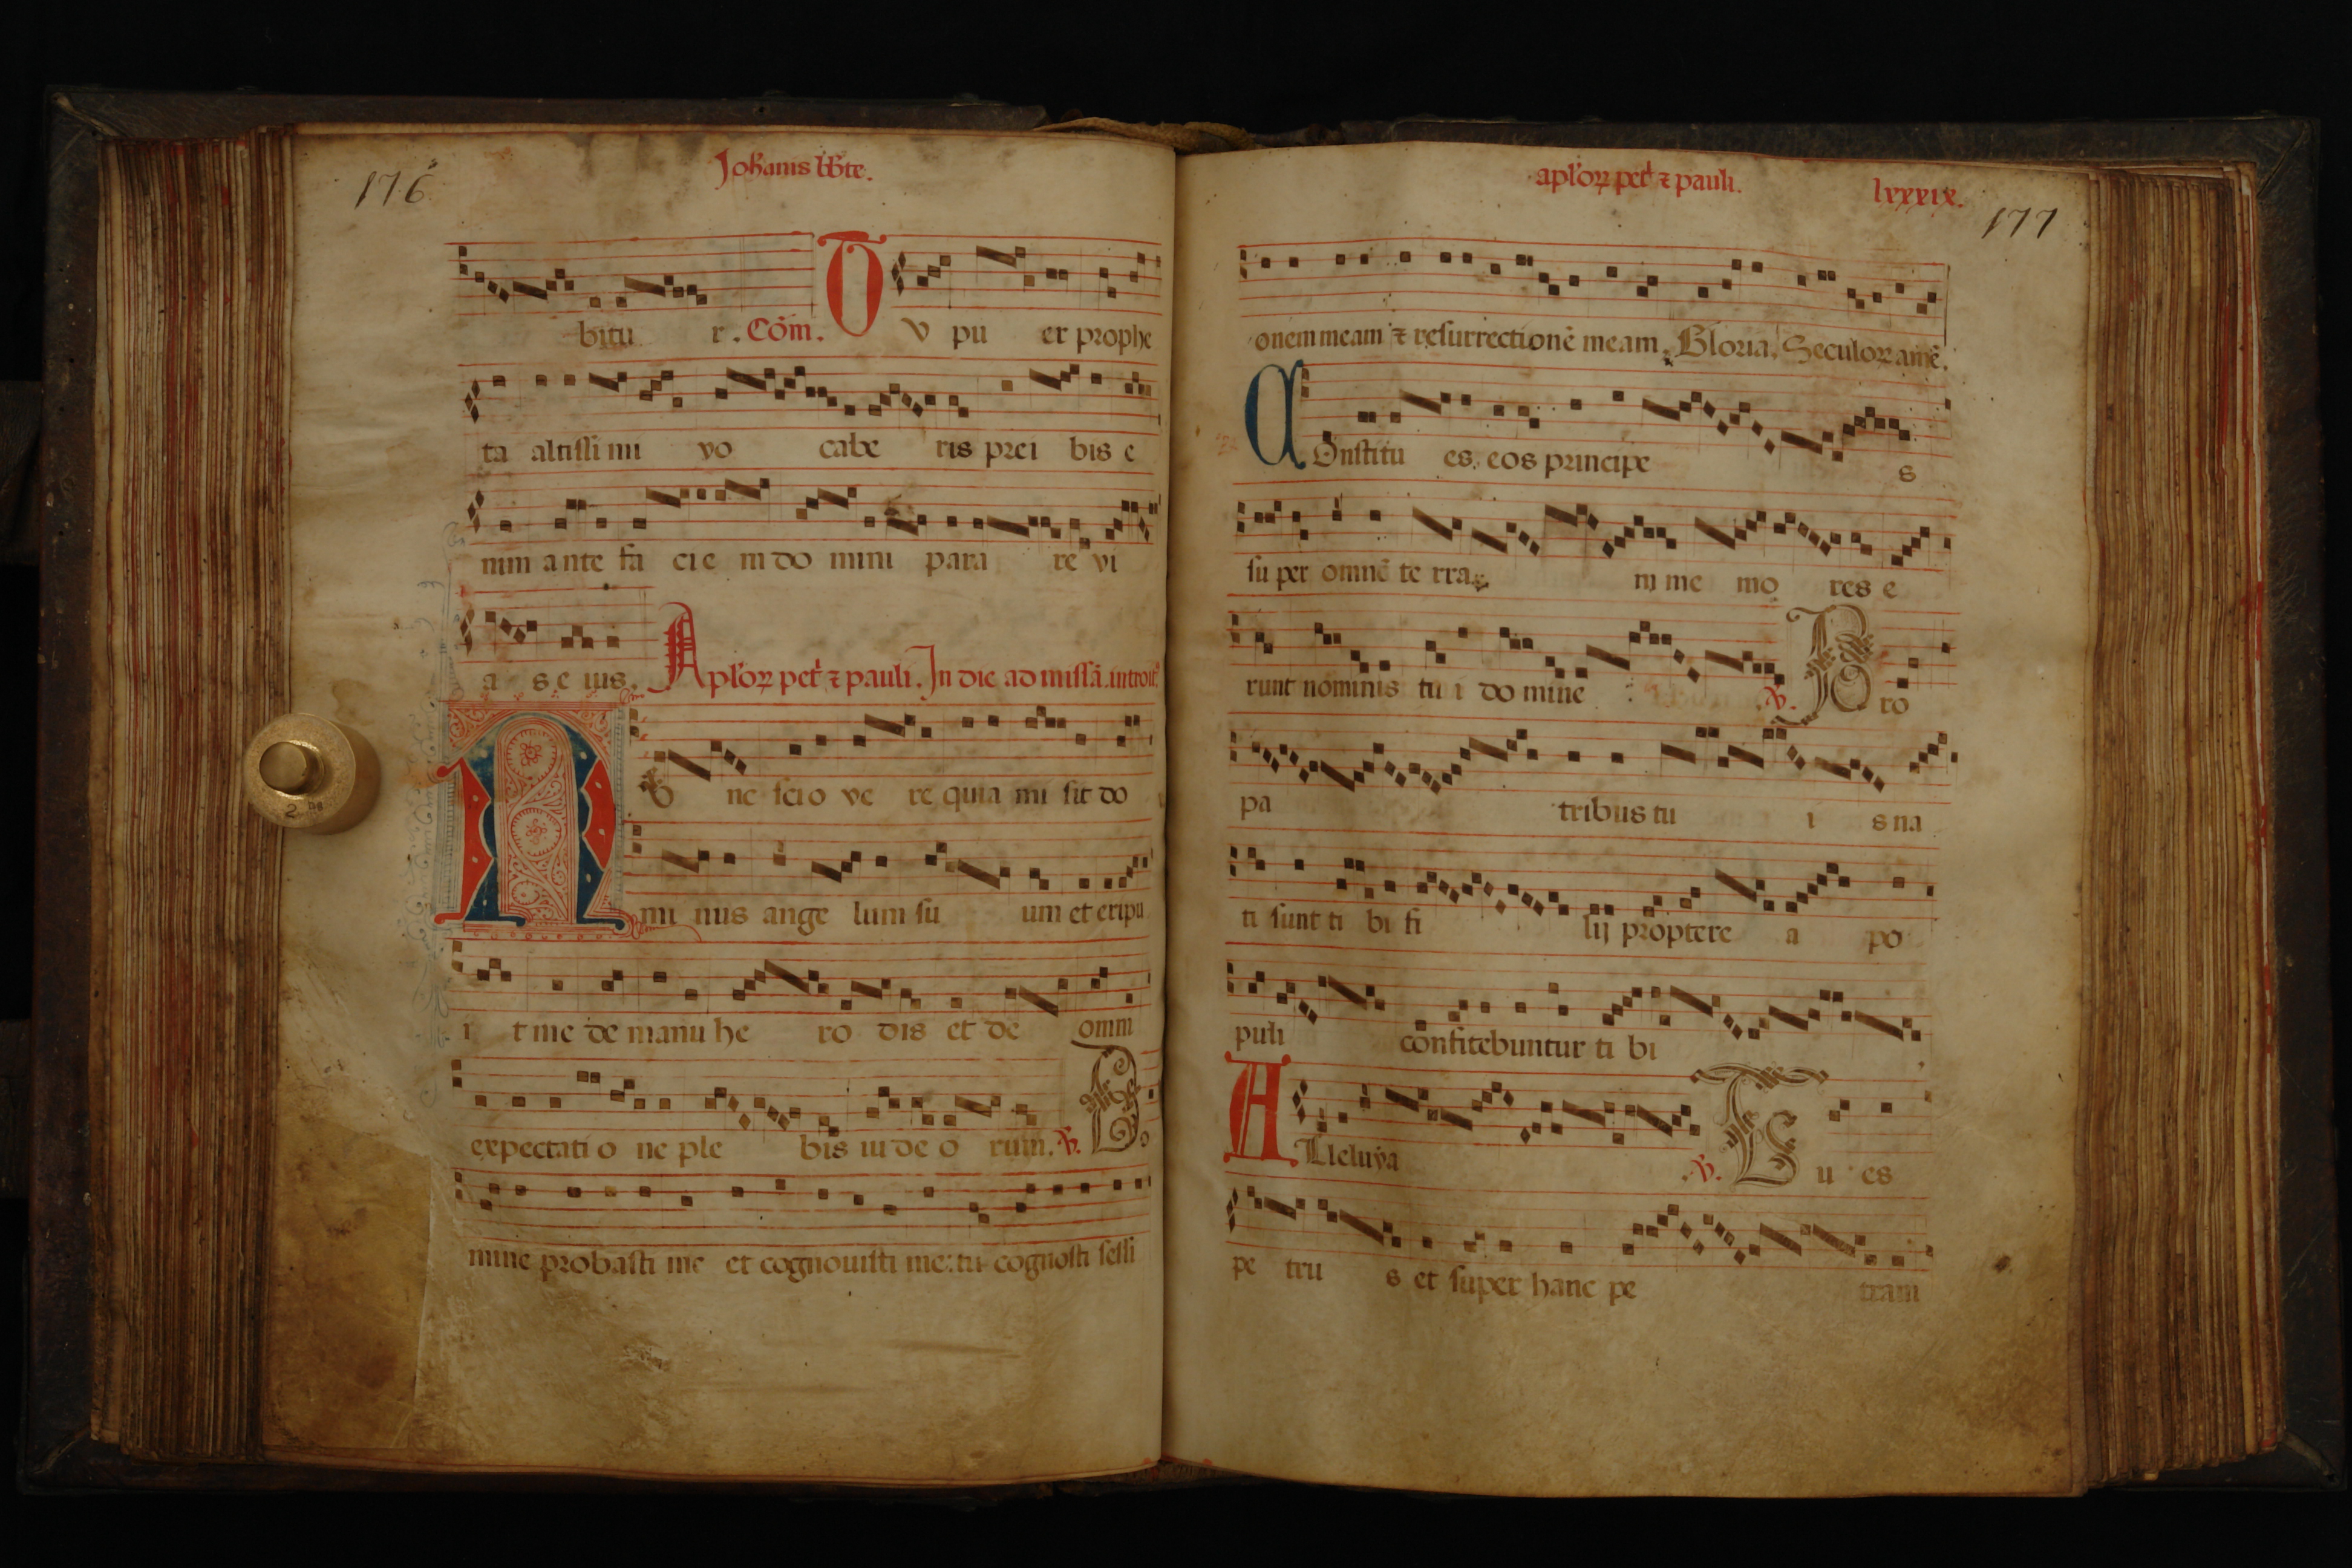 176
Johanis bb̄te.
bitu r. Cōm. T V pu er prophe
ta altissimi vo cabe ris prei bis e
nim ante fa cie m do mini para re vi
a s e ius. Aploꝝ pet̄ ⁊ pauli. In die ad missā. introit᷒
N vnc scio ve re quia mi sit do
mi nus ange lum su um et eripu
i t me de manu he ro dis et de omni
expectatio ne ple bis iu de o rum. ℣. Do
mine probasti me et cognouisti me: tu cognosti sessi
aploꝝ pet̄ ⁊ pauli. lxxxix.
177
onem meam ⁊ resurrectionē meam. Gloria. Seculoꝝ amē.
C Onstitu es. eos principe s
su per omnē te rra m me mo res e
runt nominis tu i do mine ℣. P ro
pa tribus tu i s na
ti sunt ti bi fi lij proptere a po
puli confitebuntur ti bi
A Lleluya ℣. T u es
pe tru s et super hanc pe tram
2